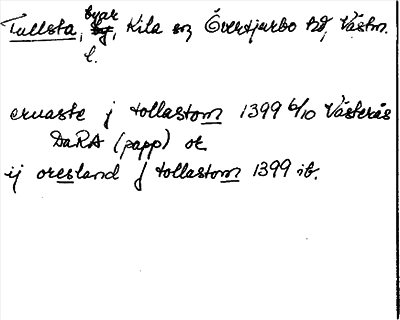 Tullsta, byar, Kila sn Övertjurbo hd, Västm.
l.
ernaste j tollastom 1399 6/10 Västerås
DaRA (papp) ok
ij oresland j tollastom 1399 ib.